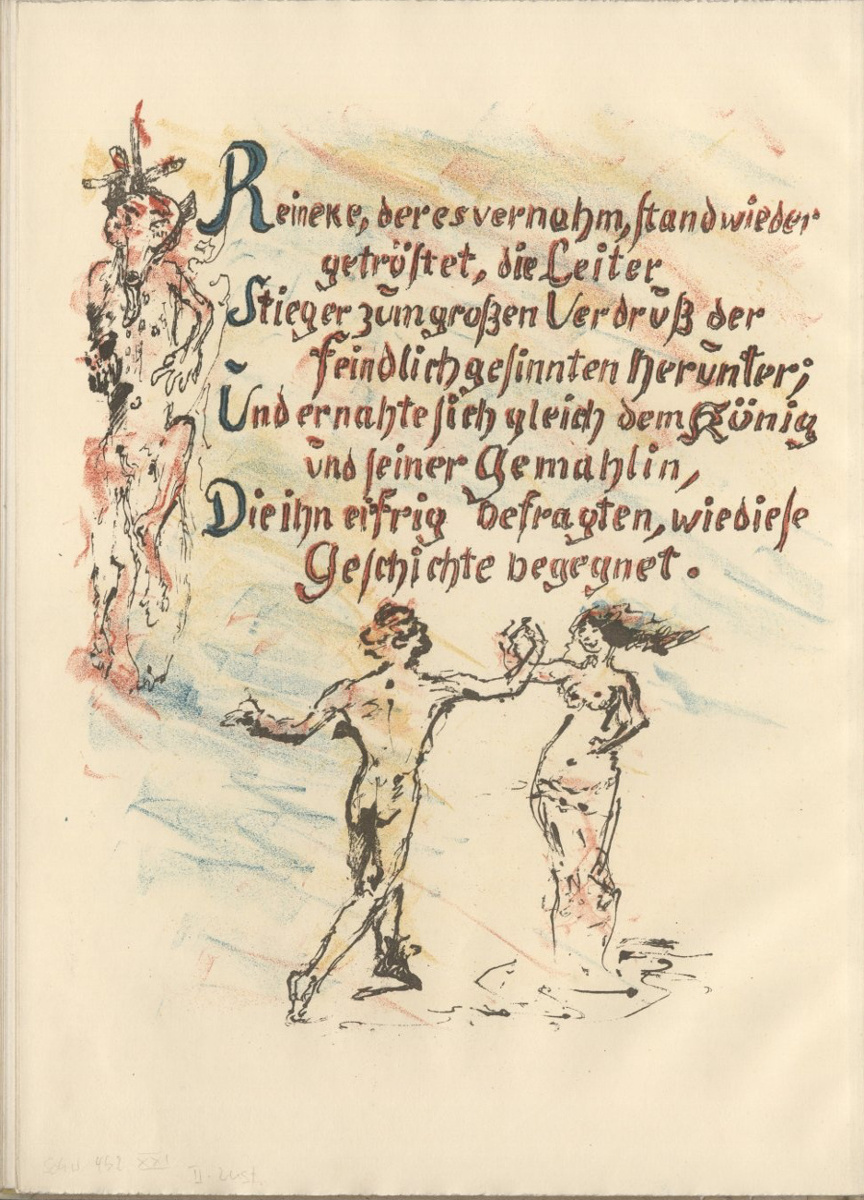 Reineke, der es vernahm, stand wieder
getröstet, die Leiter
Stieg er zum großen Verdruß der
feindlich gesinnten herunter;
Und er nahte sich gleich dem König
und seiner Gemahlin,
Die ihn eifrig befragten, wie diese
Geschichte begegnet.
II. Zust.